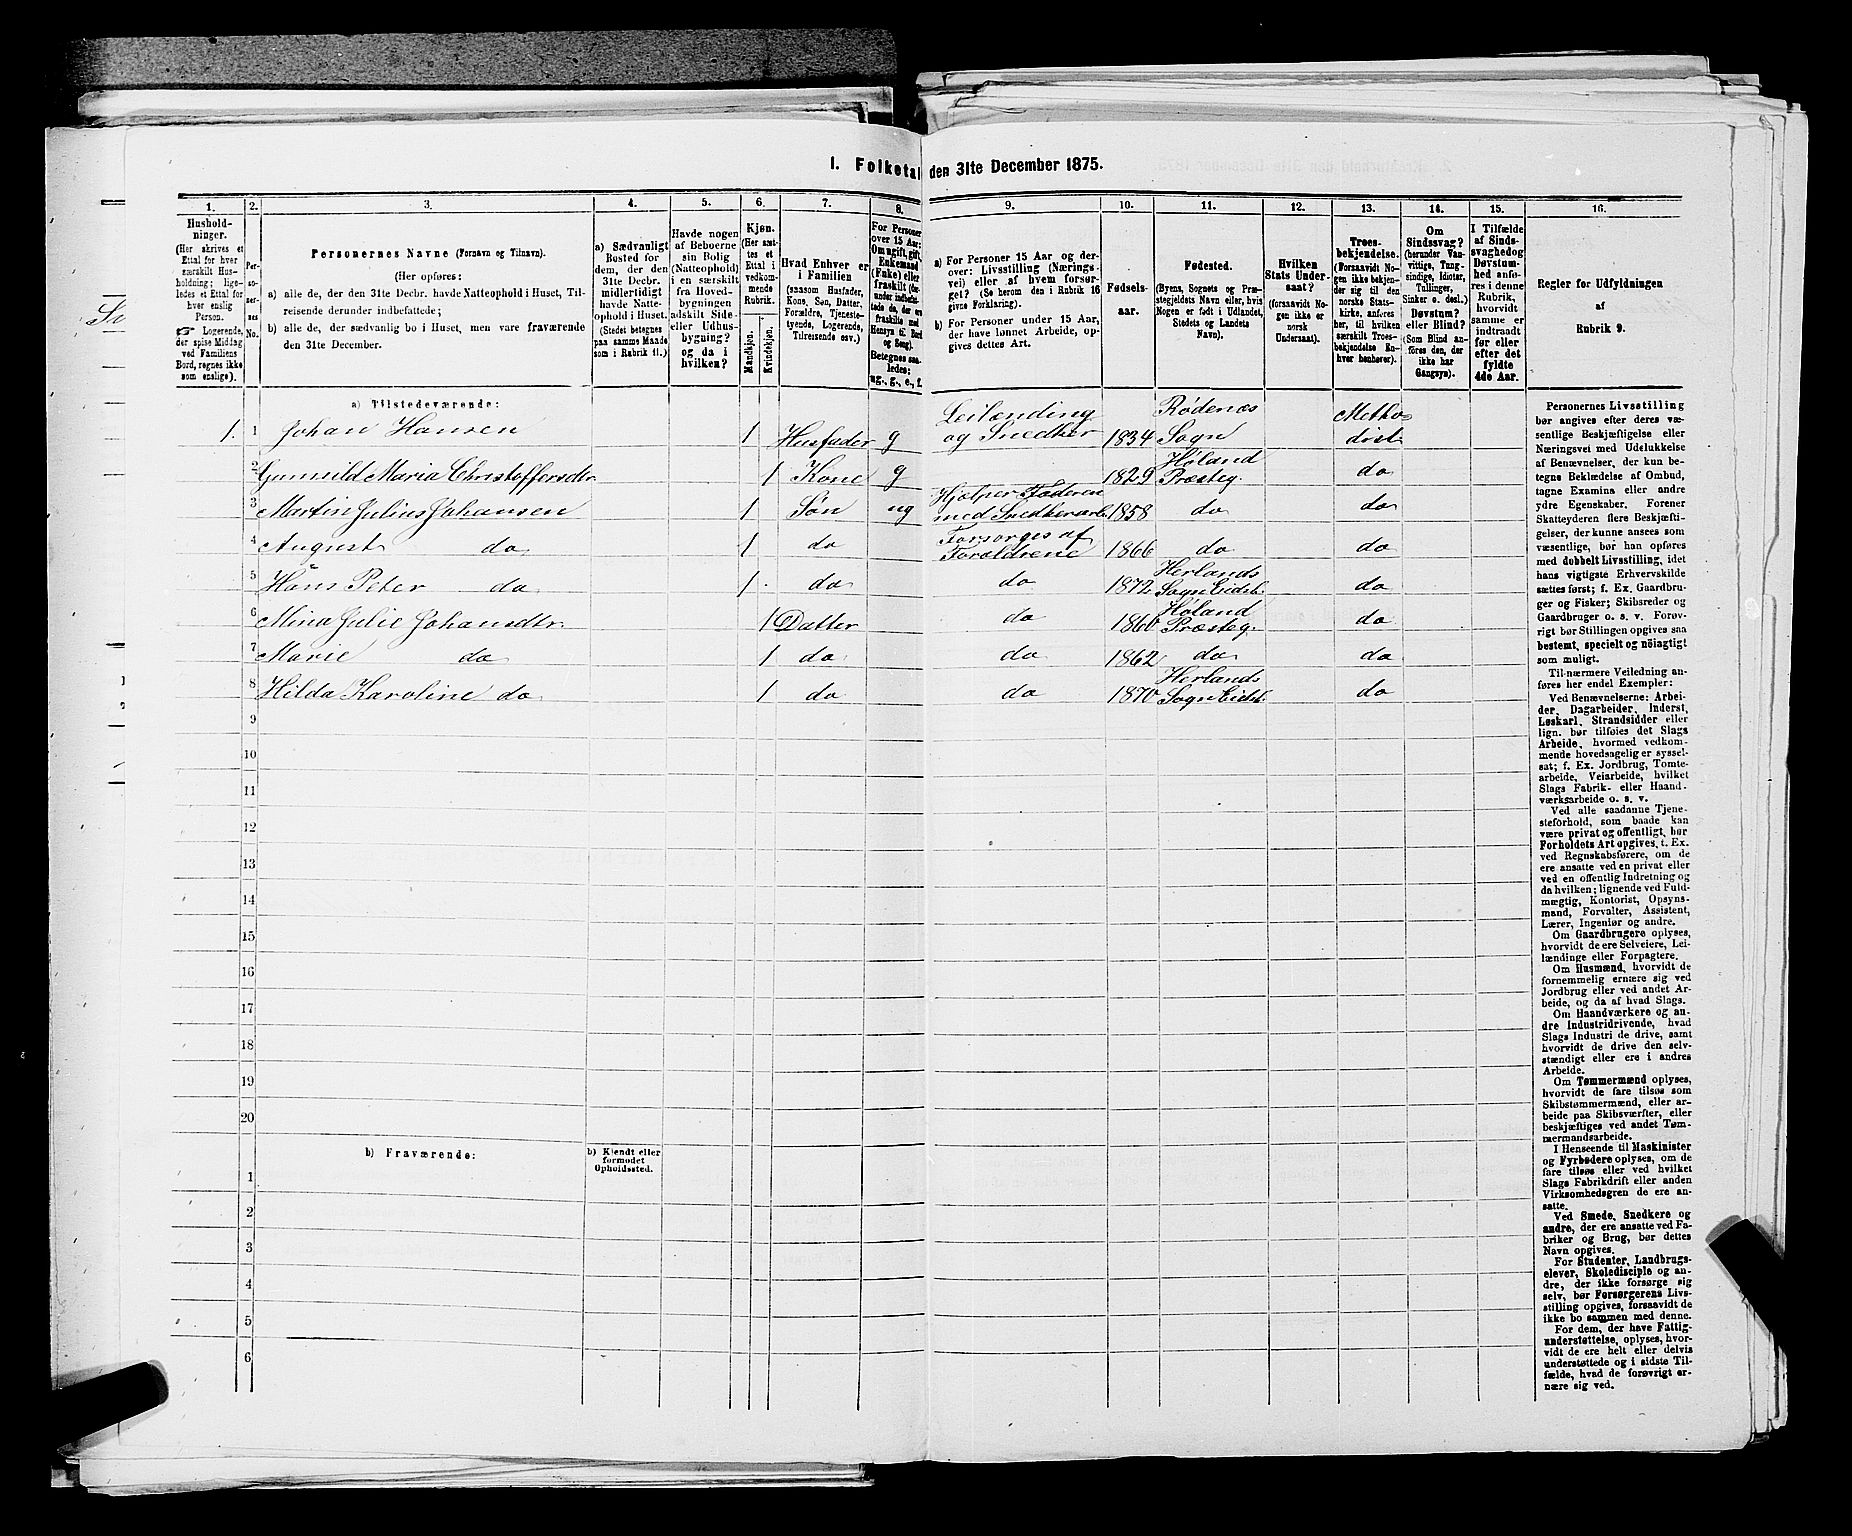 1. Folketal den 31te December 1875.
1. 2. 3. 4. 5. 6. 7. 8. 9. 10. 11. 12. 13. 14. 15. 16.
Hushold-
ninger.
(Her skrives et
Ettal for hver
særskilt Hus-
holdning; lige-
ledes et Ettal for
hver enslig
Person.
☞ Logerende,
der spise Middag
ved Familiens
Bord, regnes ikke
som enslige).
Per-
so-
ner-
nes
No.
Personernes Navne (Fornavn og Tilnavn).
(Her opføres:
a) alle de, der den 31te Decbr. havde Natteophold i Huset, Til-
reisende derunder indbefattede;
b) alle de, der sædvanlig bo i Huset, men vare fraværende
den 31te December.
a) Sædvanligt
Bosted for
dem, der den
31te Decbr.
midlertidigt
havde Natte-
ophold i Huset.
(Stedet betegnes
paa samme Maade
som i Rubrik 11.)
Havde nogen
af Beboerne
sin Bolig
(Natteophold)
i en særskilt
fra Hoved-
bygningen
adskilt Side-
eller Udhus-
bygning?
og da i
hvilken?
Kjøn.
(Her sæt-
tes et
Ettal i
vedkom-
mende
Rubrik.
Mandkjøn.
Kvindekjøn.
Hvad Enhver er
i Familien
(saasom Husfader,
Kone, Søn, Datter,
Forældre, Tjeneste-
tyende, Logerende,
Tilreisende osv.)
For Personer
over 15 Aar:
Om ugift, gift,
Enkemand
(Enke) eller
fraskilt
Betegnes saa-
ledes:
ug., g., e., f.
a) For Personer 15 Aar og der-
over: Livsstilling (Nærings-
vei) eller af hvem forsør-
get? (Se herom den i Rubrik 16
givne Forklaring).
b) For Personer under 15 Aar,
der have lønnet Arbeide, op-
gives dettes Art.
Fødsels-
aar.
Fødested.
(Byens, Sognets og Præ-
stegjeldets Navn eller, hvis
Nogen er født i Udlandet,
Stedets og Landets
Navn).
Hvilken
Stats Under-
saat?
(forsaavidt No-
gen ikke er
norsk
Undersaat).
Troes-
bekjendelse.
(Forsaavidt No-
gen ikke bekjen-
der sig til den
norske Stats-
kirke, anføres
her, til hvilken
særskilt Troes-
bekjendelse En-
hver henhører).
Om
Sindssvag?
(herunder Van-
vittige, Tung-
sindige, Idioter,
Tullinger,
Sinker o. desl.)
Døvstum?
eller Blind?
(Som Blind an-
føres den, der
ikke har
Gangsyn).
I Tilfælde
af Sinds-
svaghed og
Døvstum-
hed anfø-
res i denne
Rubrik,
hvorvidt
samme er
indtraadt
før eller
efter det
fyldte
4de Aar.
Regler for Udfyldningen
af
Rubrik 9.
a) Tilstedeværende:
1. 1 Johan Hansen 1 Husfader g Leilænding og Snedker 1834 Rødenæs Sogn Methodist
2 Gunnild Maria Christoffersdtr 1 Kone g 1829 Høland Præsteg. do
3 Martin Julius Johansen 1 Søn ug Hjælper Faderen med Snedkerarb. 1858 do do
4 August do 1 do Forsørges af Forældrene 1866 do do
5 Hans Peter do 1 do do 1872 Herlands Sogn Eidsb. do
6 Mina Julie Johansdtr. 1 Datter do 1860 Høland Præsteg. do
7 Marie do 1 do do 1862 do do
8 Hilda Karoline do 1 do do 1870 Herlands Sogn Eidsb. do
9
10
11
12
13
14
15
16
17
18
19
20
b) Fraværende:
b) Kjendt eller
formodet
Opholdssted.
1
2
3
4
5
6
Personernes Livsstilling
bør angives efter deres væ-
sentlige Beskjæftigelse eller
Næringsvei med Udelukkelse
af Benævnelser, der kun be-
tegne Beklædelse af Ombud,
tagne Examina eller andre
ydre Egenskaber. Forener
Skatteyderen flere Beskjæfti-
gelser, der kunne ansees som
væsentlige, bør han opføres
med dobbelt Livsstilling, idet
hans vigtigste Erhvervskilde
sættes først; f. Ex. Gaardbru-
ger og Fisker; Skibsreder og
Gaardbruger o. s. v. Forøv-
rigt bør Stillingen opgives saa
bestemt, specielt og nöiagtigt
som muligt.
Til nærmere Veiledning an-
føres her endel Exempler:
Ved Benævnelserne: Arbei-
der, Dagarbeider, Inderst,
Løskarl, Strandsidder eller
lign. bør tilføies det Slags
Arbeide, hvormed vedkom-
mende hovedsagelig er syssel-
sat; f. Ex. Jordbrug, Tomte-
arbeide, Veiarbeide, hvilket
Slags Fabrik- eller Haand-
værksarbeide o. s. v.
Ved alle saadanne Tjene-
steforhold, som baade kan
være privat og offentligt, bør
Forholdets Art opgives, t. Ex.
ved Regnskabsførere, om de
ere ansatte ved en privat eller
ved en offentlig Indretning og
da hvilken; lignende ved Fuld-
mægtig, Kontorist, Opsyns-
mand, Forvalter, Assistent,
Lærer, Ingeniør og andre.
Om Gaardbrugere oplyses,
hvorvidt de ere Selveiere, Lei-
lændinge eller Forpagtere.
Om Husmænd, hvorvidt de
fornemmelig ernære sig ved
Jordbrug eller ved andet Ar-
beide, og da af hvad Slags.
Om Haandværkere og an-
dre Industridrivende, hvad
Slags Industri de drive, samt
hvorvidt de drive den selv-
stændigt eller ere i andres
Arbeide.
Om Tømmermænd oplyses,
hvorvidt de fare tilsøs som
Skibstømmermænd, eller ar-
beide paa Skibsværfter, eller
beskjæftiges ved andet Tøm-
mermandsarbeide.
I Henseende til Maskinister
og Fyrbødere oplyses, om de
fare tilsøs eller ved hvilket
Slags Fabrikdrift eller anden
Virksomhedsgren de ere an-
satte.
Ved Smede, Snedkere og
andre, der ere ansatte ved Fa-
briker og Brug, bør dettes
Navn opgives.
For Studenter, Landbrugs-
elever, Skoledisciple og an-
dre, der ikke forsørge sig
selv, bør Forsørgerens Livs-
stilling opgives, forsaavidt de
ikke bo sammen med denne.
For dem, der have Fattig-
understøttelse, oplyses, hvor-
vidt de ere helt eller delvis
understøttede og i sidste Til-
fælde, hvad de forøvrigt er-
nære sig ved.